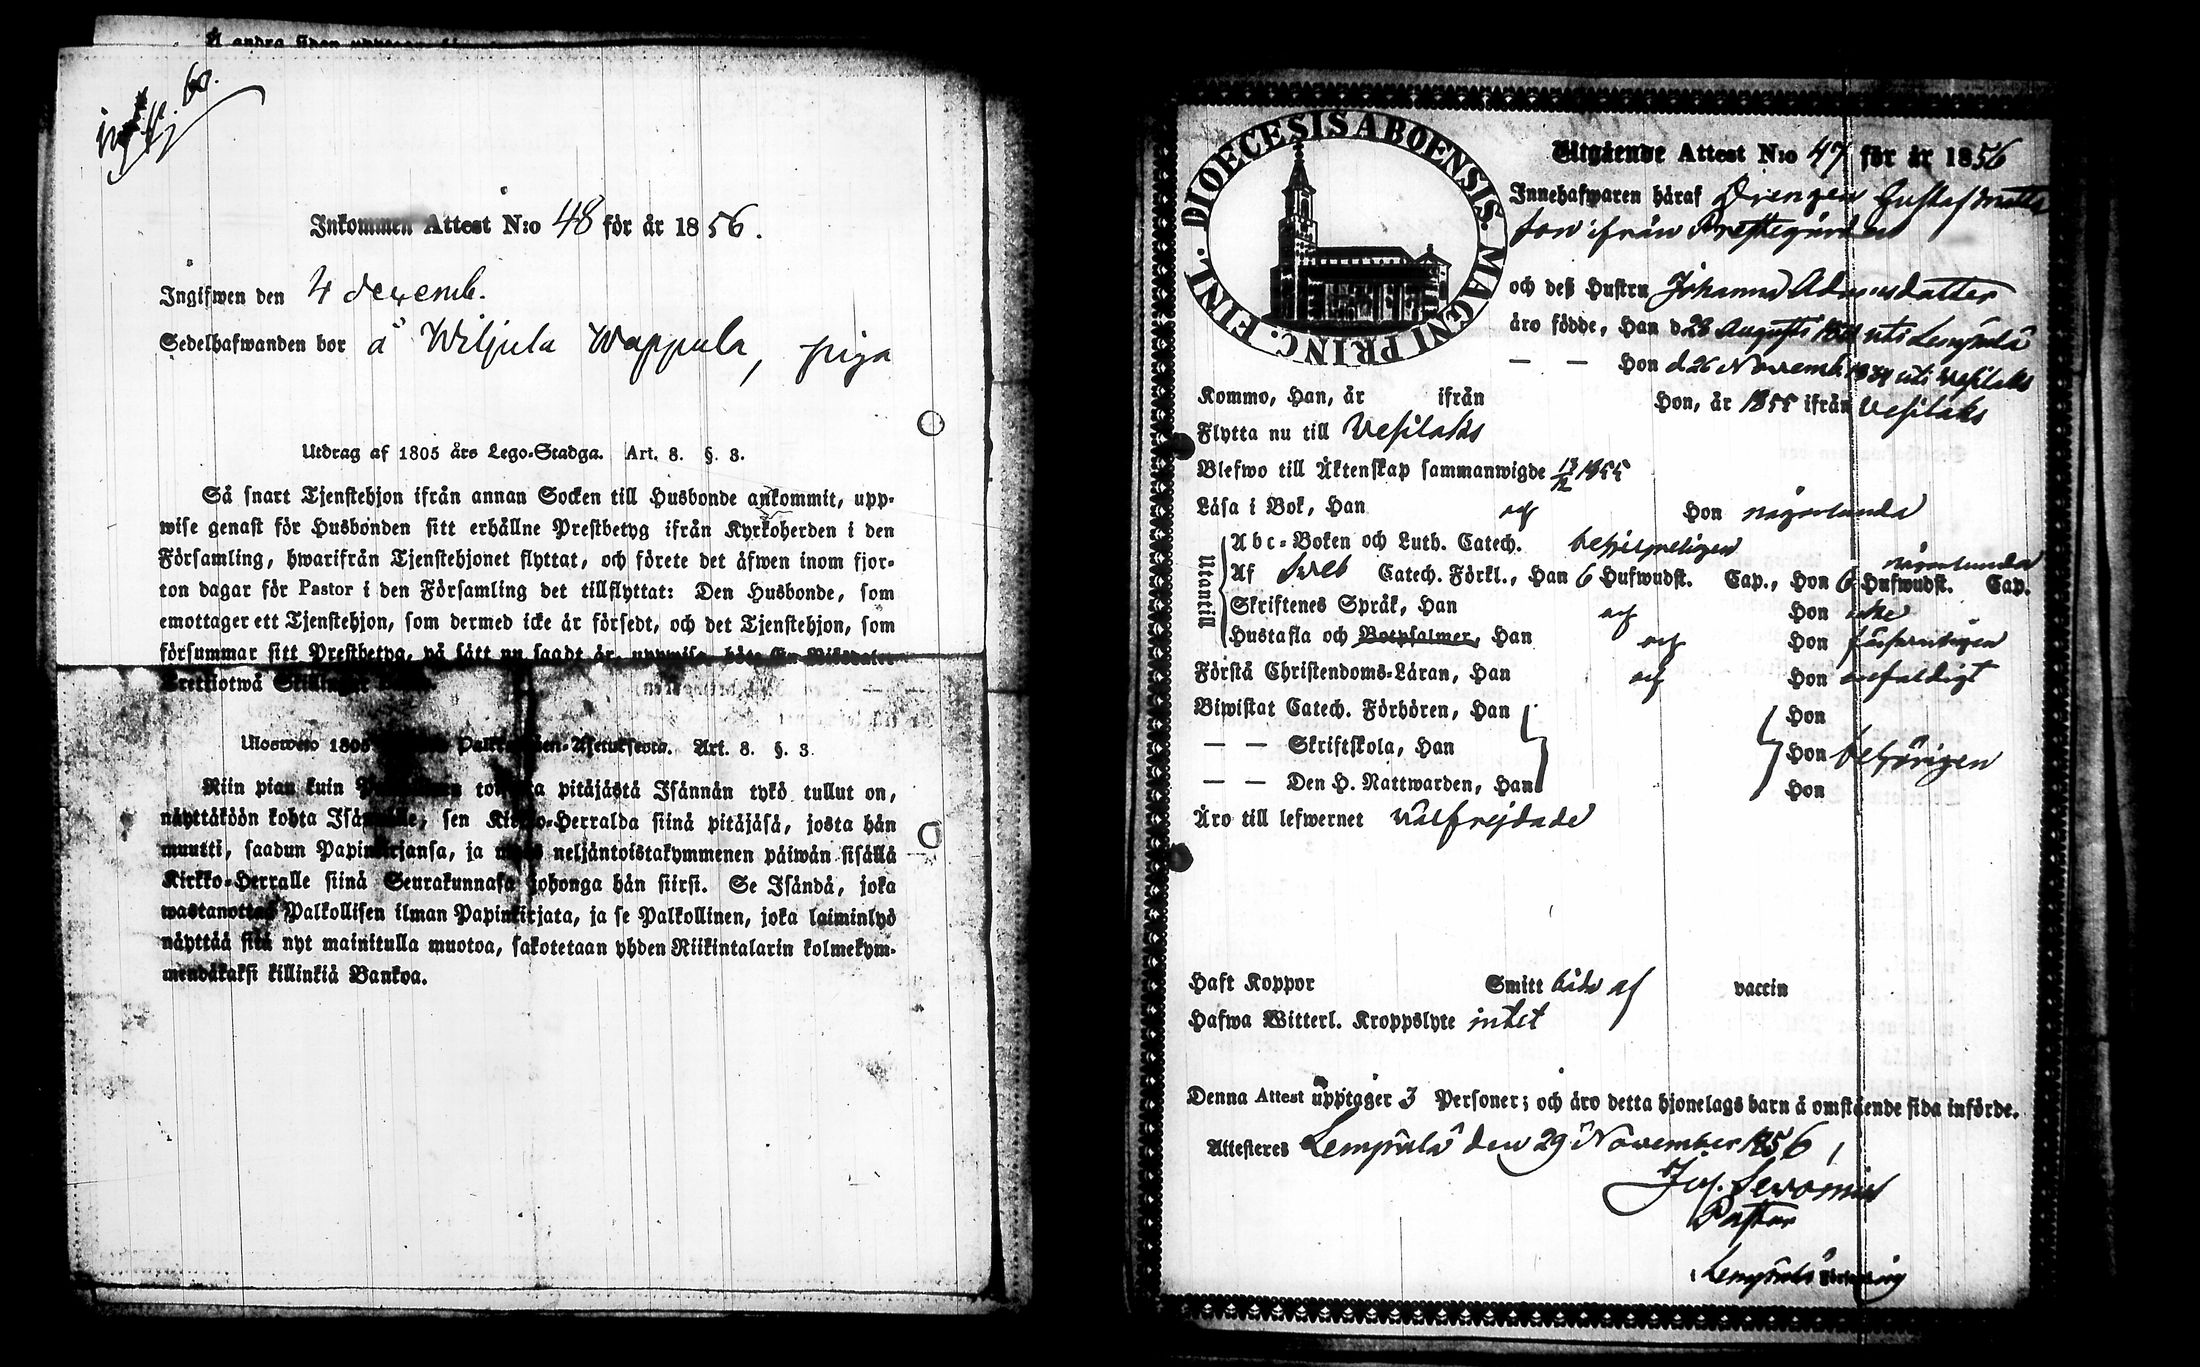 Å andra sidan
Inkommen Attest N:o 48 för år 1856.
Ingifwen den 4 decemb.
Sedelhafwanden bor å Wiljula Wappula, piga
Utdrag af 1805 års Lego-Stadga. Art. 8. §. 3.
Så snart Tjenstehjon ifrån annan Socken till Husbonde ankommit, upp-
wise genast för Husbonden sitt erhållne Prestbetyg ifrån Kyrkoherden i den
Församling, hwarifrån Tjenstehjonet flyttat, och förete det äfwen inom fjor-
ton dagar för Pastor i den Församling det tillflyttat: Den Husbonde, som
emottager ett Tjenstehjon, som dermed icke är försedt, och det Tjenstehjon, som
försummar sitt Prestbetyg, på sätt nu sagdt är, uppwisa, böte En Riksdaler
trettiotwå Skillingar
Ulosweto 1805 Palkollisen-Asetuksesta. Art. 8. §. 3.
Niin pian kuin toisesta pitäjästä Isännän tykö tullut on,
näyttäköön kohta Isännälle, sen Kirkko-Herralda siinä pitäjäsä, josta hän
muutti, saadun Papinkirjansa, ja myös neljäntoistakymmenen päiwän sisällä
Kirkko-Herralle siinä Seurakunnasa johonga hän siirsi. Se Isändä, joka
wastanottaa Palkollisen ilman Papinkirjata, ja se Palkollinen, joka laiminlyö
näyttää sitä nyt mainitulla muotoa, sakotetaan yhden Riikintalarin kolmekym-
mendäkaksi killinkiä Bankoa.
DIOECESIS ABOENSIS. MAGNI PRINC. FINL.
Utgående Attest N:o 47 för år 1856
Innehafwaren häraf Drengen Gustaf Matts
son ifrån Prestegården
och deß Hustru Johanna Adamsdatter
äro födde, Han d. 28 Augusti uti Lempälä
— — Hon d. 26 Novemb. 1834 uti Vesilaks
Kommo, Han, år ifrån Hon, år 1855 ifrån Vesilaks
Flytta nu till Vesilaks
Blefwo till Äktenskap sammanwigde 13/12 1855
Läsa i Bok, Han och Hon någorlunda
Utantill
Abc-Boken och Luth. Catech. någorlunda
Af Sveb Catech. Förkl., Han 6 Hufwudst. Cap., Hon 6 Hufwudst. Cap.
Skriftenes Språk, Han och Hon icke
Hustafla och Botpsalmer, Han och Hon
Förstå Christendoms-Läran, Han och Hon enfaldigt
Biwistat Catech. Förhören, Han Hon
— — Skriftskola, Han Hon behörigen
— — Den H. Nattwarden, Han Hon
Äro till lefwernet välfrejdade
Haft Koppor Smitt både af vaccin
Hafwa Witterl. Kroppslyte intet
Denna Attest upptager 3 Personer; och äro detta hjonelags barn å omstående sida införde.
Attesteres Lempälä den 29 November 1856,
Pastor
i Lempälä Församling